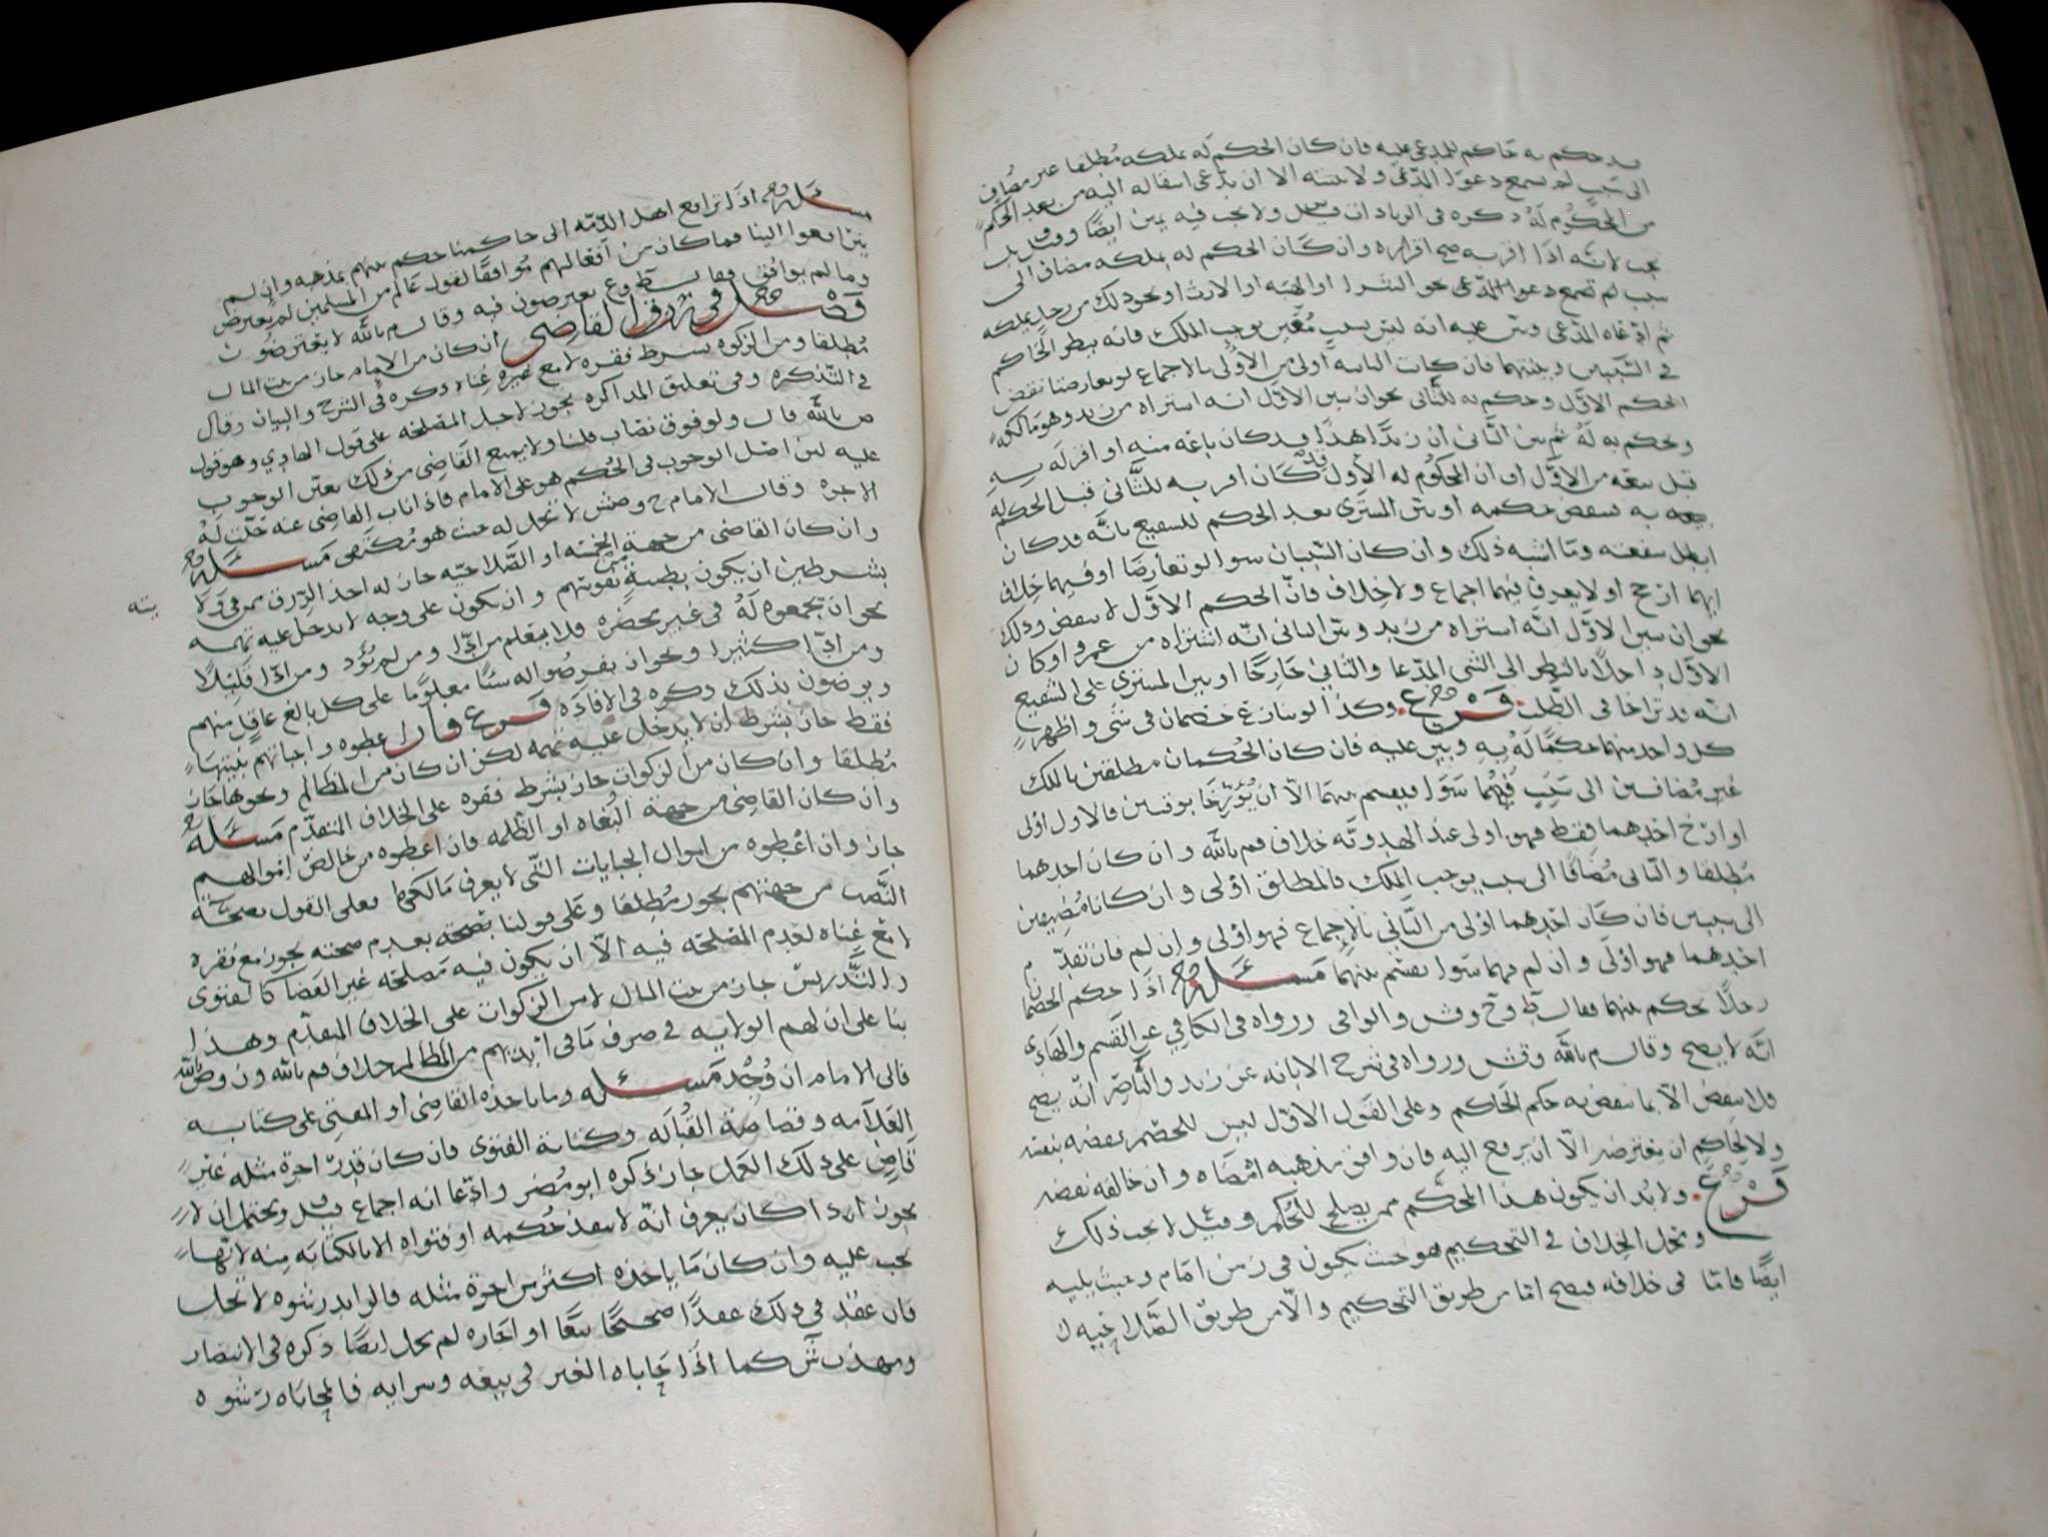 قد حكم به حاكم للمدعى عليه فان كان الحكم له بملكه مطلقا غير مضاف
الى سبب لم يسمع دعوى المدعي ولا بينته الا ان يدعي انتقاله اليه من بعد الحكم
من المحكوم له ذكره في الزيادات قيل ولا يجب فيه يمين ايضا وقيل بل
يجب لانه اذا اقر به صح اقراره وان كان الحكم له بملكه مضاف الى
سبب لم تسمع دعوا المدعي نحو الشرا او الهبه او الارث او نحو ذلك من رجل يملكه
ثم ادعاه المدعي وبين عليه انه ليس بسبب معين يوجب الملك فانه ينظر الحاكم
في السببين وبينتهما فان كانت الثانيه اولى من الاولى بالاجماع لو تعارضتا نقض
الحكم الاول وحكم به للثاني نحو ان يبين الاول انه اشتراه من زيد وهو مالكه
وحكم به له ثم بين الثاني ان زيدا هذا قد كان باعه منه او اقر له به
قبل بيعه من الاول او ان المحكوم له الاول قد كان اقر به للثاني قبل الحكم له
به فينقض حكمه او بين المشتري بعد الحكم للشفيع بانه قد كان
ابطل شفعته وما اشبه ذلك وان كان السببان سوا لو تعارضا او فيهما خلاف
ايهما ارجح او لا يعرف فيهما اجماع ولا خلاف فان الحكم الاول لا ينقض وذلك
نحو ان يبين الاول انه اشتراه من زيد وبين الثاني انه اشتراه من عمرو او كان
الاول داخلا بالنظر الى الشي المدعا والثاني خارجا او بين المشتري على الشفيع
انه قد تراخا في الطلب فرع وكذا لو تنازع خصمان في شي واظهر
كل واحد منهما حكما له به وبين عليه فان كان الحكمان مطلقين بالملك
غير مضافين الى سبب فهما سوا فيقسم بينهما الا ان يؤرخا بوقتين فالاول اولى
او ارخ احدهما فقط فهو اولى عند الهدويه خلاف م بالله وان كان احدهما
مطلقا والثاني مضافا الى سبب يوجب الملك فالمطلق اولى وان كانا مضافين
الى سببين فان كان احدهما اولى من الثاني بالاجماع فهو اولى وان لم فان تقدم
احدهما فهو اولى وان لم فهما سوا يقسم بينهما مسئله اذا حكم الخصمان
رجلا يحكم بينهما فقال ط وح وش والوافي ورواه في الكافي عن القسم والهادي
انه لا يصح وقال م بالله وش ورواه في شرح الابانه عن زيد والناصر انه يصح
فلا ينقض الا بما ينقض به حكم الحاكم وعلى القول الاول ليس للخصم نقضه بنفسه
ولا لحاكم ان يعترضه الا ان يرفع اليه فان وافق مذهبه امضاه وان خالفه نقضه
فرع ولا بد ان يكون هذا المحكم ممن يصلح للحكم وقيل لا يجب ذلك
ومحل الخلاف في التحكيم هو حيث يكون في زمن امام وحيث يليه
ايضا فاما في خلافه فيصح اما من طريق التحكيم والا من طريق الصلاحيه
مسئله اذا ترافع اهل الذمه الى حاكمنا حكم بينهم بمذهبه وان لم
يترافعوا الينا فما كان من افعالهم موافقا لقول عالم من المسلمين لم يعترض
وما لم يوافق فقال ط وع يعترضون فيه وقال م بالله لا يعترضون
فصل في رزق القاضي ان كان من الامام جاز من بيت المال
مطلقا ومن الزكوه بشرط فقره لا مع غناه ذكره في الشرح والبيان وقال
في التذكره وفي تعليق المذاكره يجوز لاجل المصلحه على قول الهادي وهو قول
م بالله قال ولو فوق نصاب قلنا ولا يمنع القاضي من ذلك تعين الوجوب
عليه لان اصل الوجوب في الحكم هو على الامام فاذا اناب القاضي عنه حلت له
الاجره وقال الامام ح وصش لا تحل له حيث هو مكتفي مسئله
وان كان القاضي من جهة الخمسه او الصلاحيه جاز له اخذ الرزق ممن في ولا
يته
بشرطين ان يكون بطيبة نفوسهم وان يكون على وجه لا يدخل عليه تهمه
نحو ان تجمعوه له في غير محضره فلا يعلم من ادا ومن لم يؤد ومن ادا قليلا
ومن ادا كثيرا ونحو ان يفرضوا له شيئا معلوما على كل بالغ عاقل منهم
ويرضون بذلك ذكره في الافاده فرع فان اعطوه واجباتهم بنيتها
فقط جاز بشرط ان لا يدخل عليه تهمه لكن ان كان من المظالم ونحوها جاز
مطلقا وان كان من الزكوات جاز بشرط فقره على الخلاف المتقدم مسئله
وان كان القاضي من جهة البغاه او الظلمه فان اعطوه من خالص اموالهم
جاز وان اعطوه من اموال الجبايات التي لا يعرف مالكها فعلى القول بصحة
النصب من جهتهم يجوز مطلقا وعلى قولنا بعدم صحته يجوز مع فقره
لا مع غناه لعدم المصلحه فيه الا ان يكون فيه مصلحه غير القضا كالفتوى
والتدريس جاز من بيت المال لا من الزكوات على الخلاف المتقدم وهذا
بنا على ان لهم الولايه في صرف ما في ايديهم من المظالم خلاف م بالله
فالى الامام ان وجد مسئله وما ياخذه القاضي او المفتي على كتابه
العلامه وقصاصة القباله وكتابة الفتوى فان كان قدر اجرة مثله غير
قاض على ذلك العمل جاز ذكره ابو مضر وادعا انه اجماع قيل ويحتمل ان لا
يجوز اذا كان يعرف انه لا ينفذ حكمه او فتواه الا بالكتابه منه لانها
تجب عليه وان كان ما ياخذه اكثر من اجرة مثله فالزايد رشوه لا تحل
فان عقد في ذلك عقدا صحيحا بيعا او اجاره لم يحل ايضا ذكره في الانتصار
ومهذب ش كما اذا حاباه الغير في بيعه وشرايه فالمحاباه رشوه